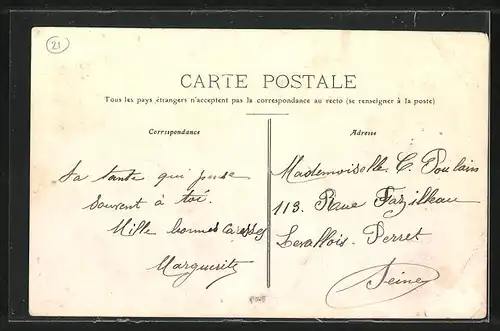 21
CARTE POSTALE
Tous les pays étrangers n'acceptent pas la correspondance au recto (se renseigner à la poste)
Correspondance
Ta tante qui pense
souvent à toi.
Mille bonnes caresses
Marguerite
Adresse
Mademoiselle C. Poulain
113. Rue Fazilleau
Levallois-Perret
Seine